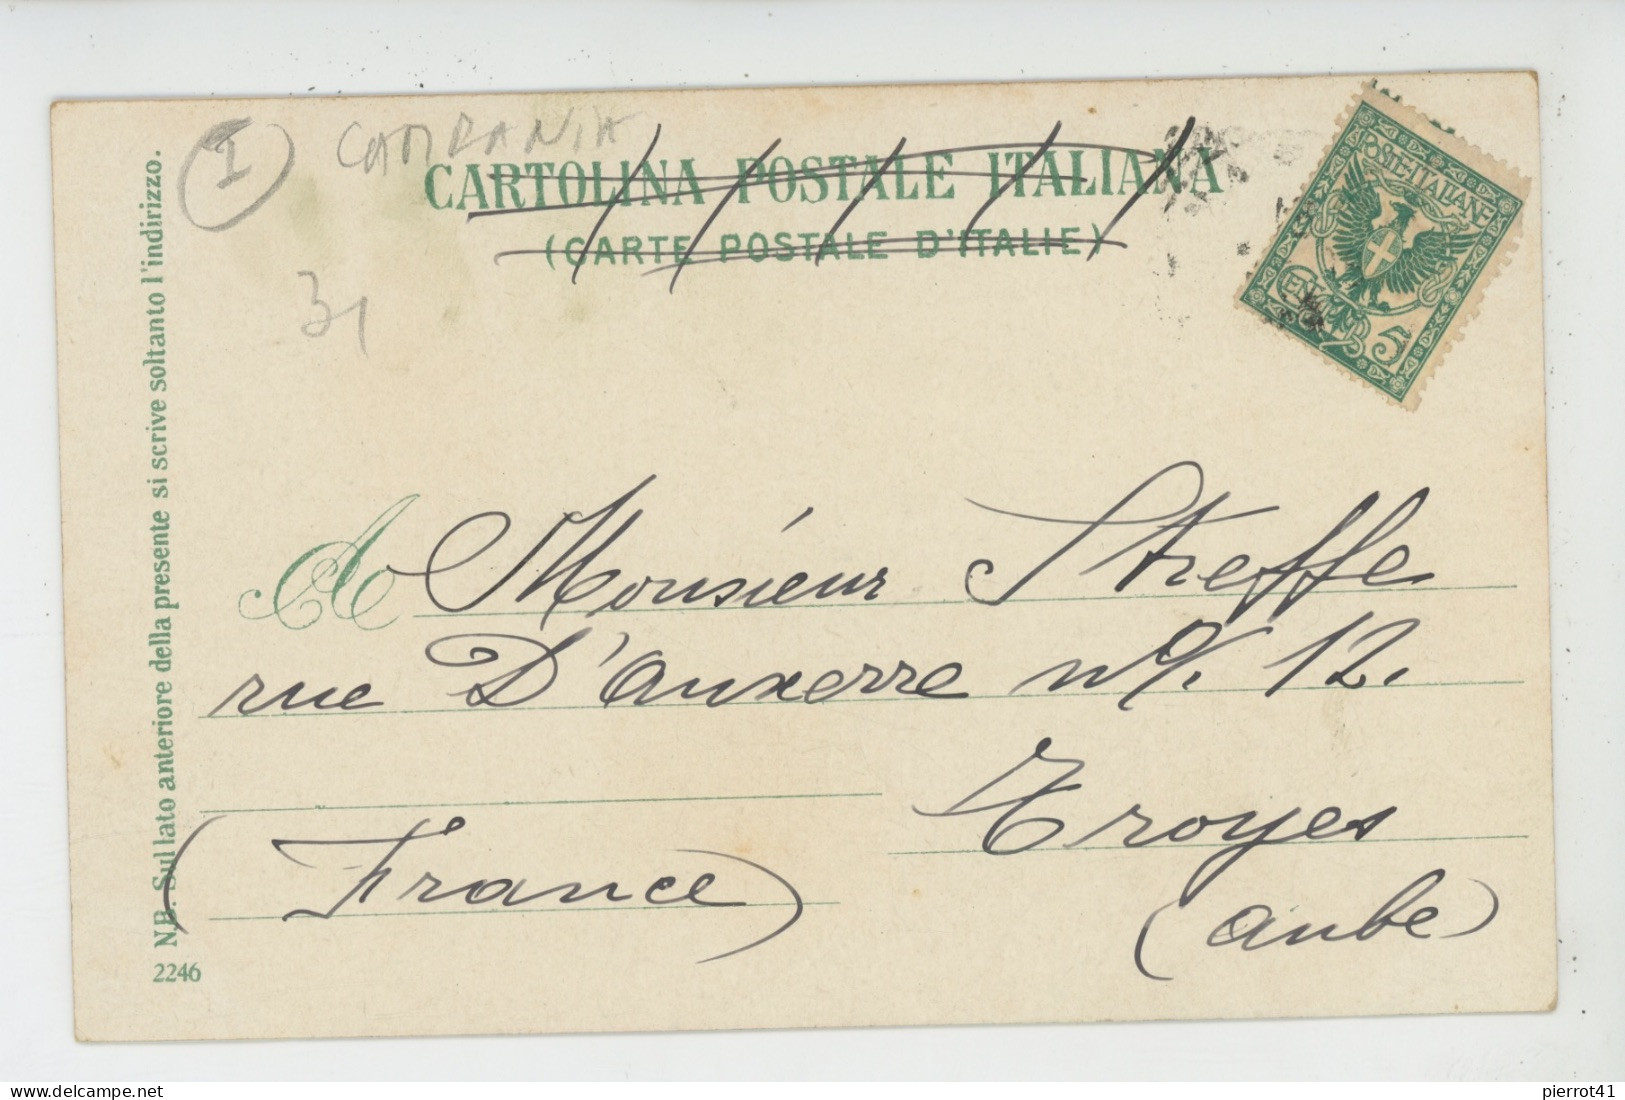 I
CAMPANIA
CARTOLINA POSTALE ITALIANA
(CARTE POSTALE D'ITALIE)
31
POSTE ITALIANE
CENT. 5
N.B. Sul lato anteriore della presente si scrive soltanto l'indirizzo.
A Monsieur Streffe
rue D'auxerre nº. 12.
Troyes
(France)
(aube)
2246
pierrot41